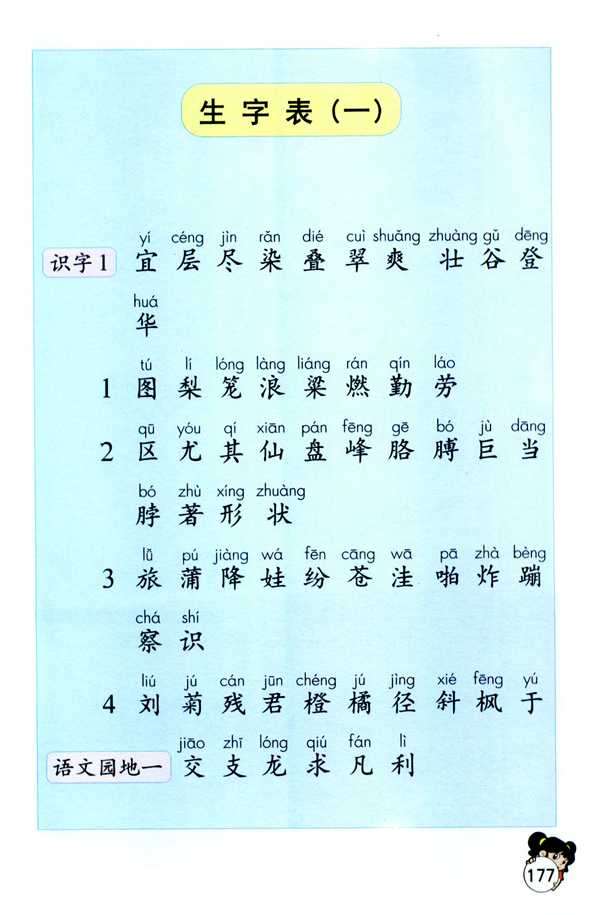 生字表(一)
yí céng jìn rǎn dié cuì shuǎng zhuàng gǔ dēng
识字1 宜 层 尽 染 叠 翠 爽 壮 谷 登
huá
华
tú lí lóng làng liáng rán qín láo
1 图 梨 笼 浪 梁 燃 勤 劳
qū yóu qí xiān pán fēng gē bó jù dāng
2 区 尤 其 仙 盘 峰 胳 膊 巨 当
bó zhù xíng zhuàng
脖 著 形 状
lǚ pú jiàng wá fēn cāng wā pā zhà bèng
3 旅 蒲 降 娃 纷 苍 洼 啪 炸 蹦
chá shí
察 识
liú jú cán jūn chéng jú jìng xié fēng yú
4 刘 菊 残 君 橙 橘 径 斜 枫 于
jiāo zhī lóng qiú fán lì
语文园地一 交 支 龙 求 凡 利
177